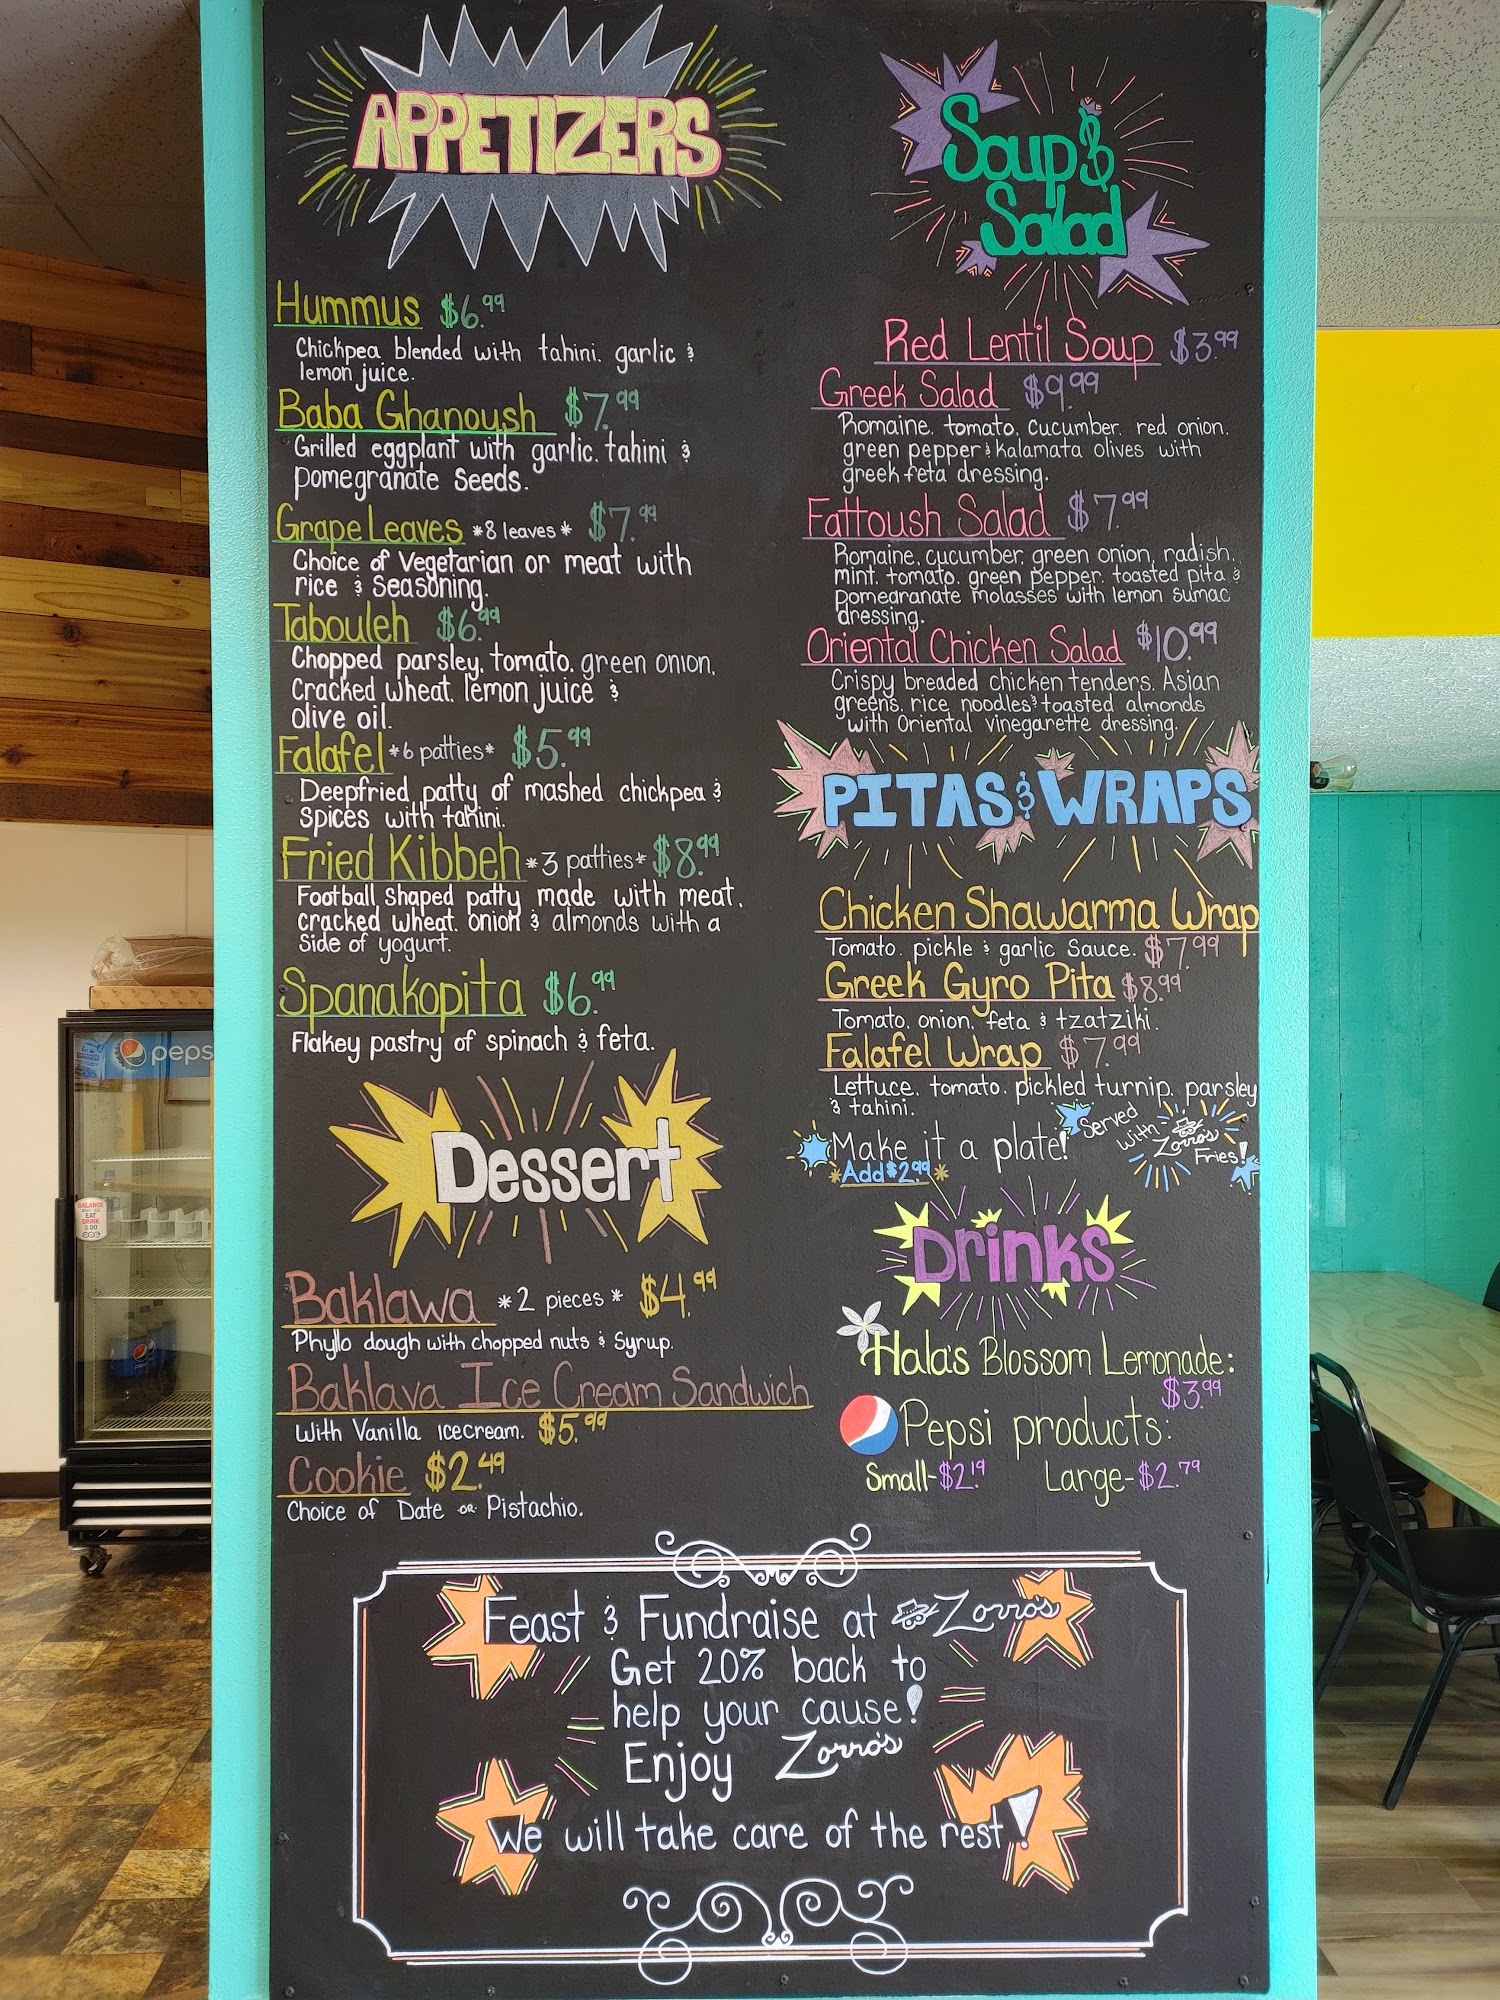 APPETIZERS
Hummus $6.99
Chickpea blended with tahini, garlic &
lemon juice.
Baba Ghanoush $7.99
Grilled eggplant with garlic, tahini &
pomegranate Seeds.
Grape Leaves *8 leaves* $7.99
Choice of Vegetarian or meat with
rice & Seasoning.
Tabouleh $6.99
Chopped parsley, tomato, green onion,
Cracked wheat, lemon juice &
olive oil.
Falafel *6 patties* $5.99
Deepfried patty of mashed chickpea &
Spices with tahini.
Fried Kibbeh *3 patties* $8.99
Football Shaped patty made with meat,
cracked wheat, onion & almonds with a
Side of yogurt.
Spanakopita $6.99
Flakey pastry of spinach & feta.
Dessert
Baklawa *2 pieces* $4.99
Phyllo dough with chopped nuts & Syrup.
Baklava Ice Cream Sandwich
With Vanilla icecream. $5.99
Cookie $2.49
Choice of Date OR Pistachio.
Soup &
Salad
Red Lentil Soup $3.99
Greek Salad $9.99
Romaine, tomato, cucumber, red onion,
green pepper & kalamata olives with
greek feta dressing.
Fattoush Salad $7.99
Romaine, cucumber, green onion, radish,
mint, tomato, green pepper, toasted pita &
pomegranate molasses with lemon sumac
dressing.
Oriental Chicken Salad $10.99
Crispy breaded chicken tenders, Asian
greens, rice noodles & toasted almonds
with Oriental vinegarette dressing.
PITAS & WRAPS
Chicken Shawarma Wrap
Tomato, pickle & garlic Sauce. $7.99
Greek Gyro Pita $8.99
Tomato, onion, feta & tzatziki.
Falafel Wrap $7.99
Lettuce, tomato, pickled turnip, parsley
& tahini.
Make it a plate!
*Add $2.99*
Served
with
Zorro's
Fries!
Drinks
Hala's Blossom Lemonade:
$3.99
Pepsi products:
Small-$2.19 Large-$2.79
Feast & Fundraise at Zorro's
Get 20% back to
help your cause!
Enjoy Zorro's
We will take care of the rest!
peps
BALANCE
EAT
DRINK
& DO